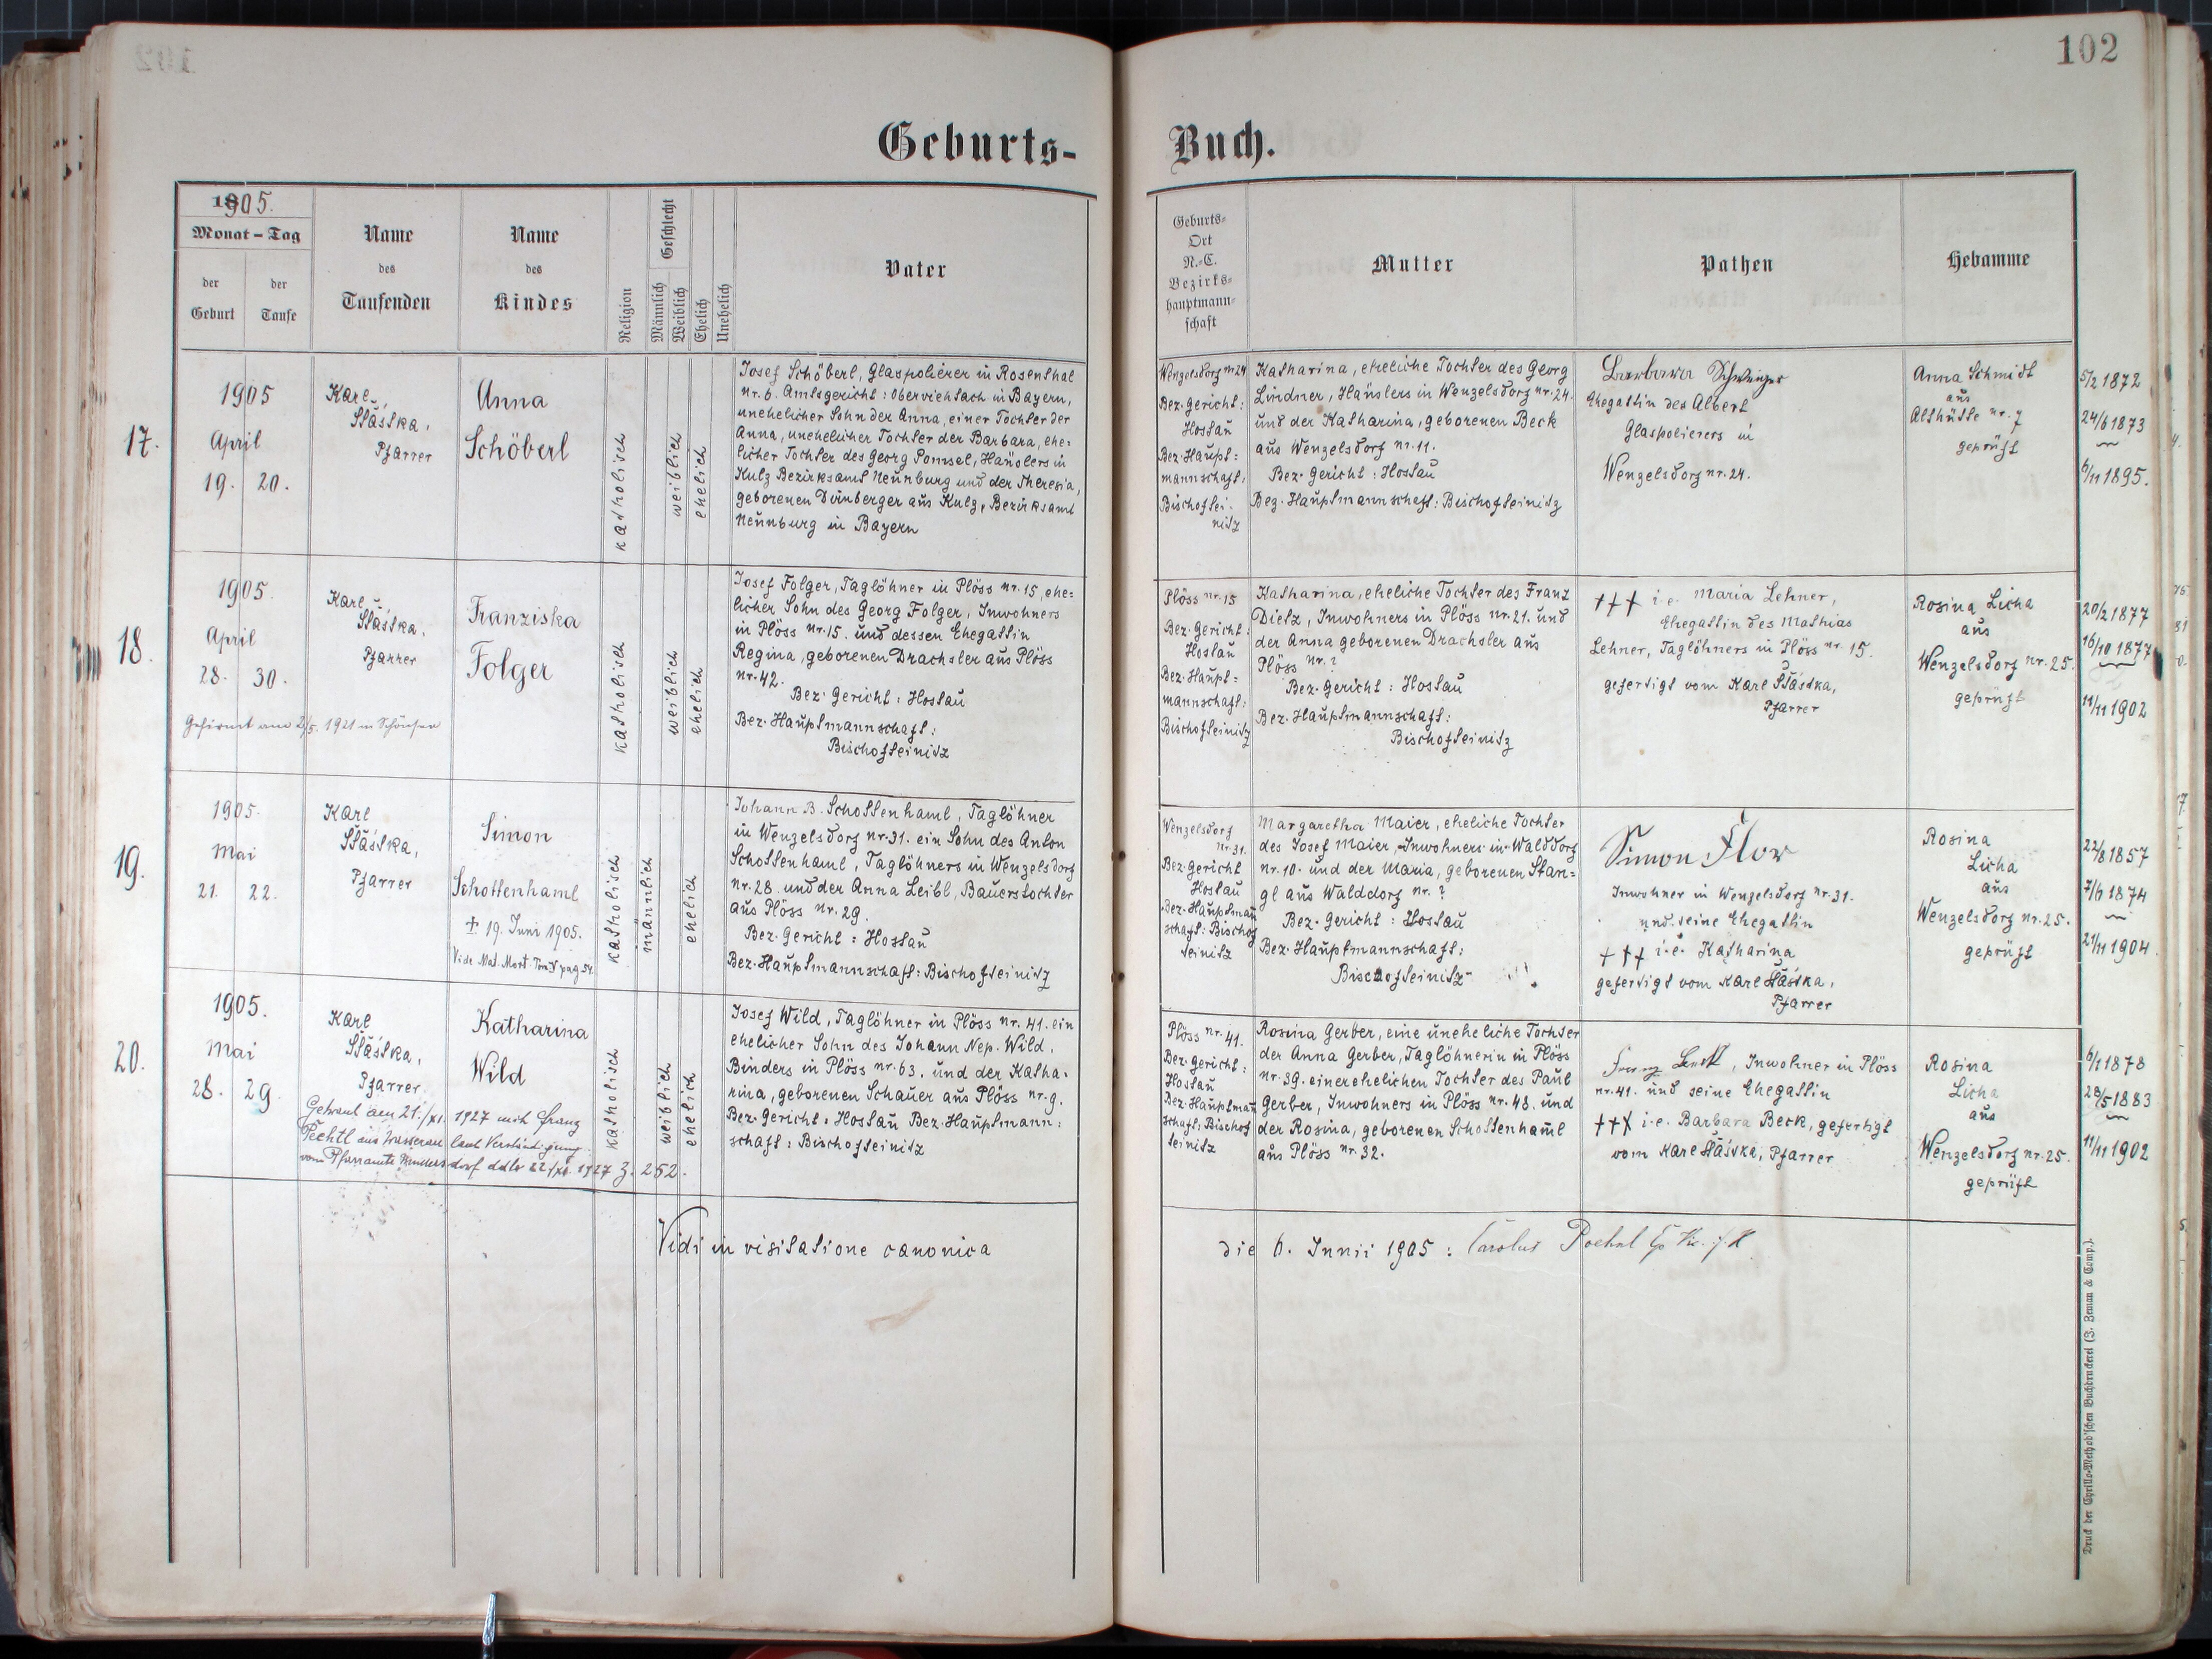 102
Geburts-Buch.
1905.
Monat - Tag
der Geburt
der Taufe
Name
des
Taufenden
Name
des
Kindes
Religion
Geschlecht
Männlich
Weiblich
Ehelich
Unehelich
Vater
Geburts-
Ort
N.-C.
Bezirks-
hauptmann-
schaft
Mutter
Pathen
Hebamme
17.
1905
April
19. 20.
Karl
Šťástka,
Pfarrer
Anna
Schöberl
katholisch
weiblich
ehelich
Josef Schöberl, Glaspolierer in Rosenthal
nr. 6. Amtsgericht: Oberviechtach in Bayern,
unehelicher Sohn der Anna, einer Tochter der
Anna, unehelicher Tochter der Barbara, ehe=
licher Tochter des Georg Pomsel, Häuslers in
Kulz Bezirksamt Neunburg und der Theresia,
geborenen Dirnberger aus Kulz, Bezirksamt
Neunburg in Bayern
Wenzelsdorf nr 24
Bez. Gericht:
Hostau
Bez. Haupt=
mannschaft,
Bischoftei-
nitz
Katharina, eheliche Tochter des Georg
Lindner, Häuslers in Wenzelsdorf nr. 24.
und der Katharina, geborenen Beck
aus Wenzelsdorf nr. 11.
Bez. Gericht: Hostau
Bez. Hauptmannschaft: Bischofteinitz
Barbara Schwinger
Ehegattin des Albert
Glaspolierers in
Wenzelsdorf nr. 24.
Anna Schmidt
aus
Althütte nr. 7
geprüft
5/2 1872
24/6 1873
6/11 1895.
18.
1905.
April
28. 30.
Gefirmt am 2/5. 1921 in
Karl
Šťástka,
Pfarrer
Franziska
Folger
katholisch
weiblich
ehelich
Josef Folger, Taglöhner in Plöss nr. 15, ehe=
licher Sohn des Georg Folger, Inwohners
in Plöss nr. 15. und dessen Ehegattin
Regina, geborenen Drachsler aus Plöss
nr. 42.
Bez. Gericht: Hostau
Bez. Hauptmannschaft:
Bischofteinitz
Plöss nr. 15
Bez. Gericht:
Hostau
Bez. Haupt=
mannschaft:
Bischofteinitz
Katharina, eheliche Tochter des Franz
Dietz, Inwohners in Plöss nr. 21. und
der Anna geborenen Drachsler aus
Plöss nr. ?
Bez. Gericht: Hostau
Bez. Hauptmannschaft:
Bischofteinitz
+++ i.e. Maria Lehner,
Ehegattin des Mathias
Lehner, Taglöhners in Plöss nr. 15.
gefertigt vom Karl Šťástka,
Pfarrer
Rosina Licha
aus
Wenzelsdorf nr. 25.
geprüft
20/2 1877
16/10 1877
11/11 1902
19.
1905.
Mai
21. 22.
Karl
Šťástka,
Pfarrer
Simon
Schottenhaml
† 19. Juni 1905.
Vide Mat. Mort. Tom. V pag. 54.
katholisch
männlich
ehelich
Johann B. Schottenhaml, Taglöhner
in Wenzelsdorf nr. 31. ein Sohn des Anton
Schottenhaml, Taglöhners in Wenzelsdorf
nr. 28. und der Anna Leibl, Bauerstochter
aus Plöss nr. 29.
Bez. Gericht: Hostau
Bez. Hauptmannschaft: Bischofteinitz
Wenzelsdorf
nr. 31.
Bez. Gericht
Hostau
Bez. Hauptman
schaft: Bischof
teinitz
Margaretha Maier, eheliche Tochter
des Josef Maier, Inwohners in Walddorf
nr. 10. und der Maria, geborenen Stan=
gl aus Walddorf nr. ?
Bez. Gericht: Hostau
Bez. Hauptmannschaft:
Bischofteinitz
Simon Flor
Inwohner in Wenzelsdorf nr. 31.
und seine Ehegattin
+++ i.e. Katharina
gefertigt vom Karl Šťástka,
Pfarrer
Rosina
Licha
aus
Wenzelsdorf nr. 25.
geprüft
22/8 1857
7/6 1874
21/11 1904
20.
1905.
Mai
28. 29
Karl
Šťástka,
Pfarrer
Katharina
Wild
Getraut am 21./XI. 1927 mit Franz
Pechtl aus laut Verständigung
vom Pfarramte ddto 22/XI. 1927 Z. 252.
katholisch
weiblich
ehelich
Josef Wild, Taglöhner in Plöss nr. 41. ein
ehelicher Sohn des Johann Nep. Wild,
Binders in Plöss nr. 63. und der Katha-
rina, geborenen Schauer aus Plöss nr. 9.
Bez. Gericht: Hostau Bez. Hauptmann:
schaft: Bischofteinitz
Plöss nr. 41.
Bez. Gericht:
Hostau
Bez. Hauptman
schaft: Bischof
teinitz
Rosina Gerber, eine uneheliche Tochter
der Anna Gerber, Taglöhnerin in Plöss
nr. 39. einer ehelichen Tochter des Paul
Gerber, Inwohners in Plöss nr. 48. und
der Rosina, geborenen Schottenhaml
aus Plöss nr. 32.
Franz Beck, Inwohner in Plöss
nr. 41. und seine Ehegattin
+++ i.e. Barbara Beck, gefertigt
vom Karl Šťástka, Pfarrer
Rosina
Licha
aus
Wenzelsdorf nr. 25.
geprüft
6/1 1878
28/5 1883
11/11 1902
Vidi in visitatione canonica die 6. Junii 1905: Carolus
Druck der Cyrillo-Method'schen Buchdruckerei (J. Zeman & Comp.).